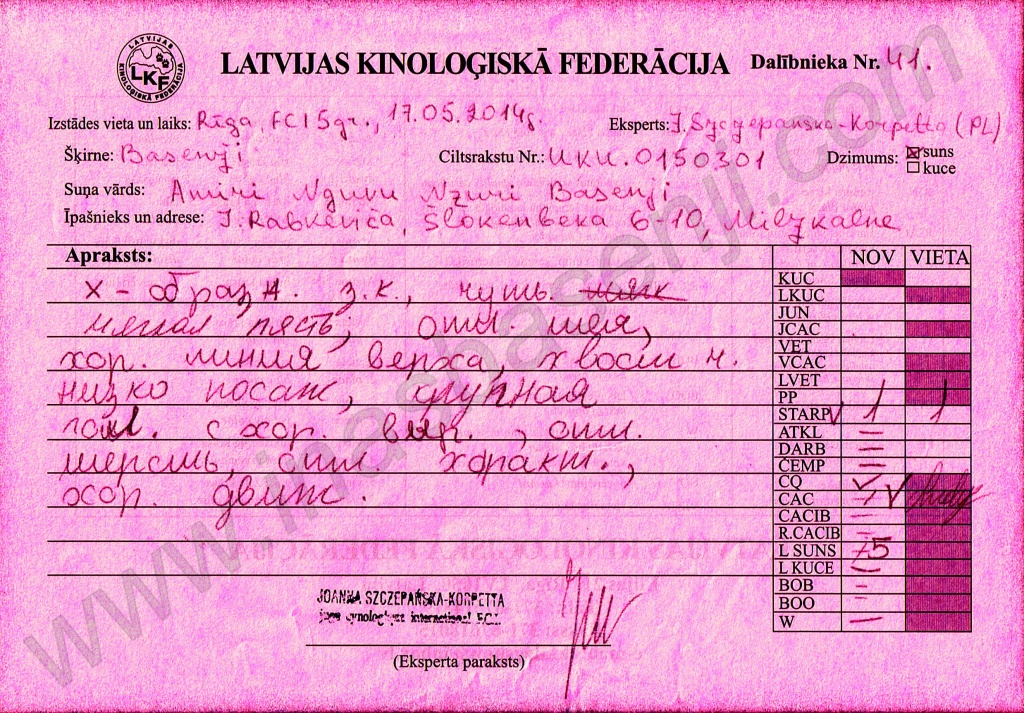 LATVIJAS KINOLOĢISKĀ FEDERĀCIJA
LKF
LATVIJAS KINOLOĢISKĀ FEDERĀCIJA Dalībnieka Nr. 41.
Izstādes vieta un laiks: Rīga, FCI 5gr., 17.05.2014g. Eksperts: J. Szczepańska-Korpetta (PL)
Šķirne: Basenji Ciltsrakstu Nr.: UKU.0150301 Dzimums: suns
kuce
Suņa vārds: Amiri Nguvu Nzuri Basenji
Īpašnieks un adrese: J. Rabkeviča, Šlokenbeka 6-10, Milzkalne
Apraksts: NOV VIETA
х-образн. з.к., чуть.
мягкая пясть, отл. шея,
хор. линия верха, хвост ч.
низко посаж, крупная
гол. с хор. выр., отл.
шерсть, отл. характ.,
хор. движ.
KUC
LKUC
JUN
JCAC
VET
VCAC
LVET
PP
STARP V 1 1
ATKL –
DARB –
ČEMP –
CQ V
CAC V
CACIB –
R.CACIB –
L SUNS 5
L KUCE –
BOB –
BOO –
W –
JOANNA SZCZEPAŃSKA-KORPETTA
(Eksperta paraksts)
www.inasbasenji.com